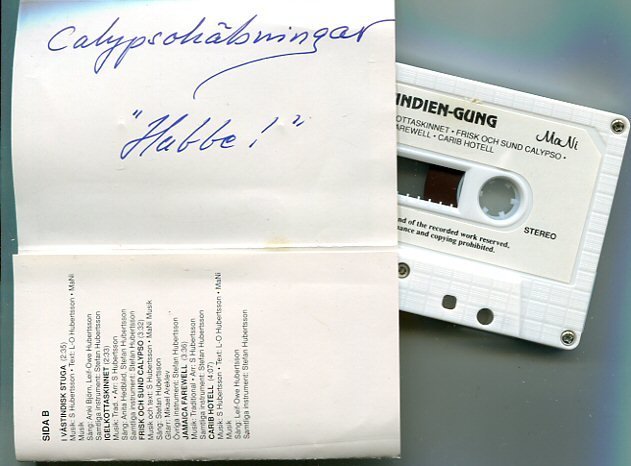 Calypsohälsningar
"Hubbe!"
INDIEN-GUNG
KOTTASKINNET • FRISK OCH SUND CALYPSO •
AREWELL • CARIB HOTELL
MaNi
STEREO
nd of the recorded work reserved.
mance and copying prohibited.
SIDA B
I VÄSTINDISK STUGA (2:35)
Musik: S Hubertsson • Text: L-O Hubertsson • MaNi
Musik
Sång: Anki Björn, Leif-Owe Hubertsson
Samtliga instrument: Stefan Hubertsson
IGELKOTTASKINNET (2:33)
Musik: Trad. • Arr: S Hubertsson
Sång: Anita Hedblad, Stefan Hubertsson
Samtliga instrument: Stefan Hubertsson
FRISK OCH SUND CALYPSO (3:32)
Musik och text: S Hubertsson • MaNi Musik
Sång: Stefan Hubertsson
Gitarr: Mikael Areklev
Övriga instrument: Stefan Hubertsson
JAMAICA FAREWELL (3:36)
Musik: Traditional • Arr: S Hubertsson
Samtliga instrument: Stefan Hubertsson
CARIB HOTELL (4:07)
Musik: S Hubertsson • Text: L-O Hubertsson • MaNi
Musik
Sång: Leif-Owe Hubertsson
Samtliga instrument: Stefan Hubertsson